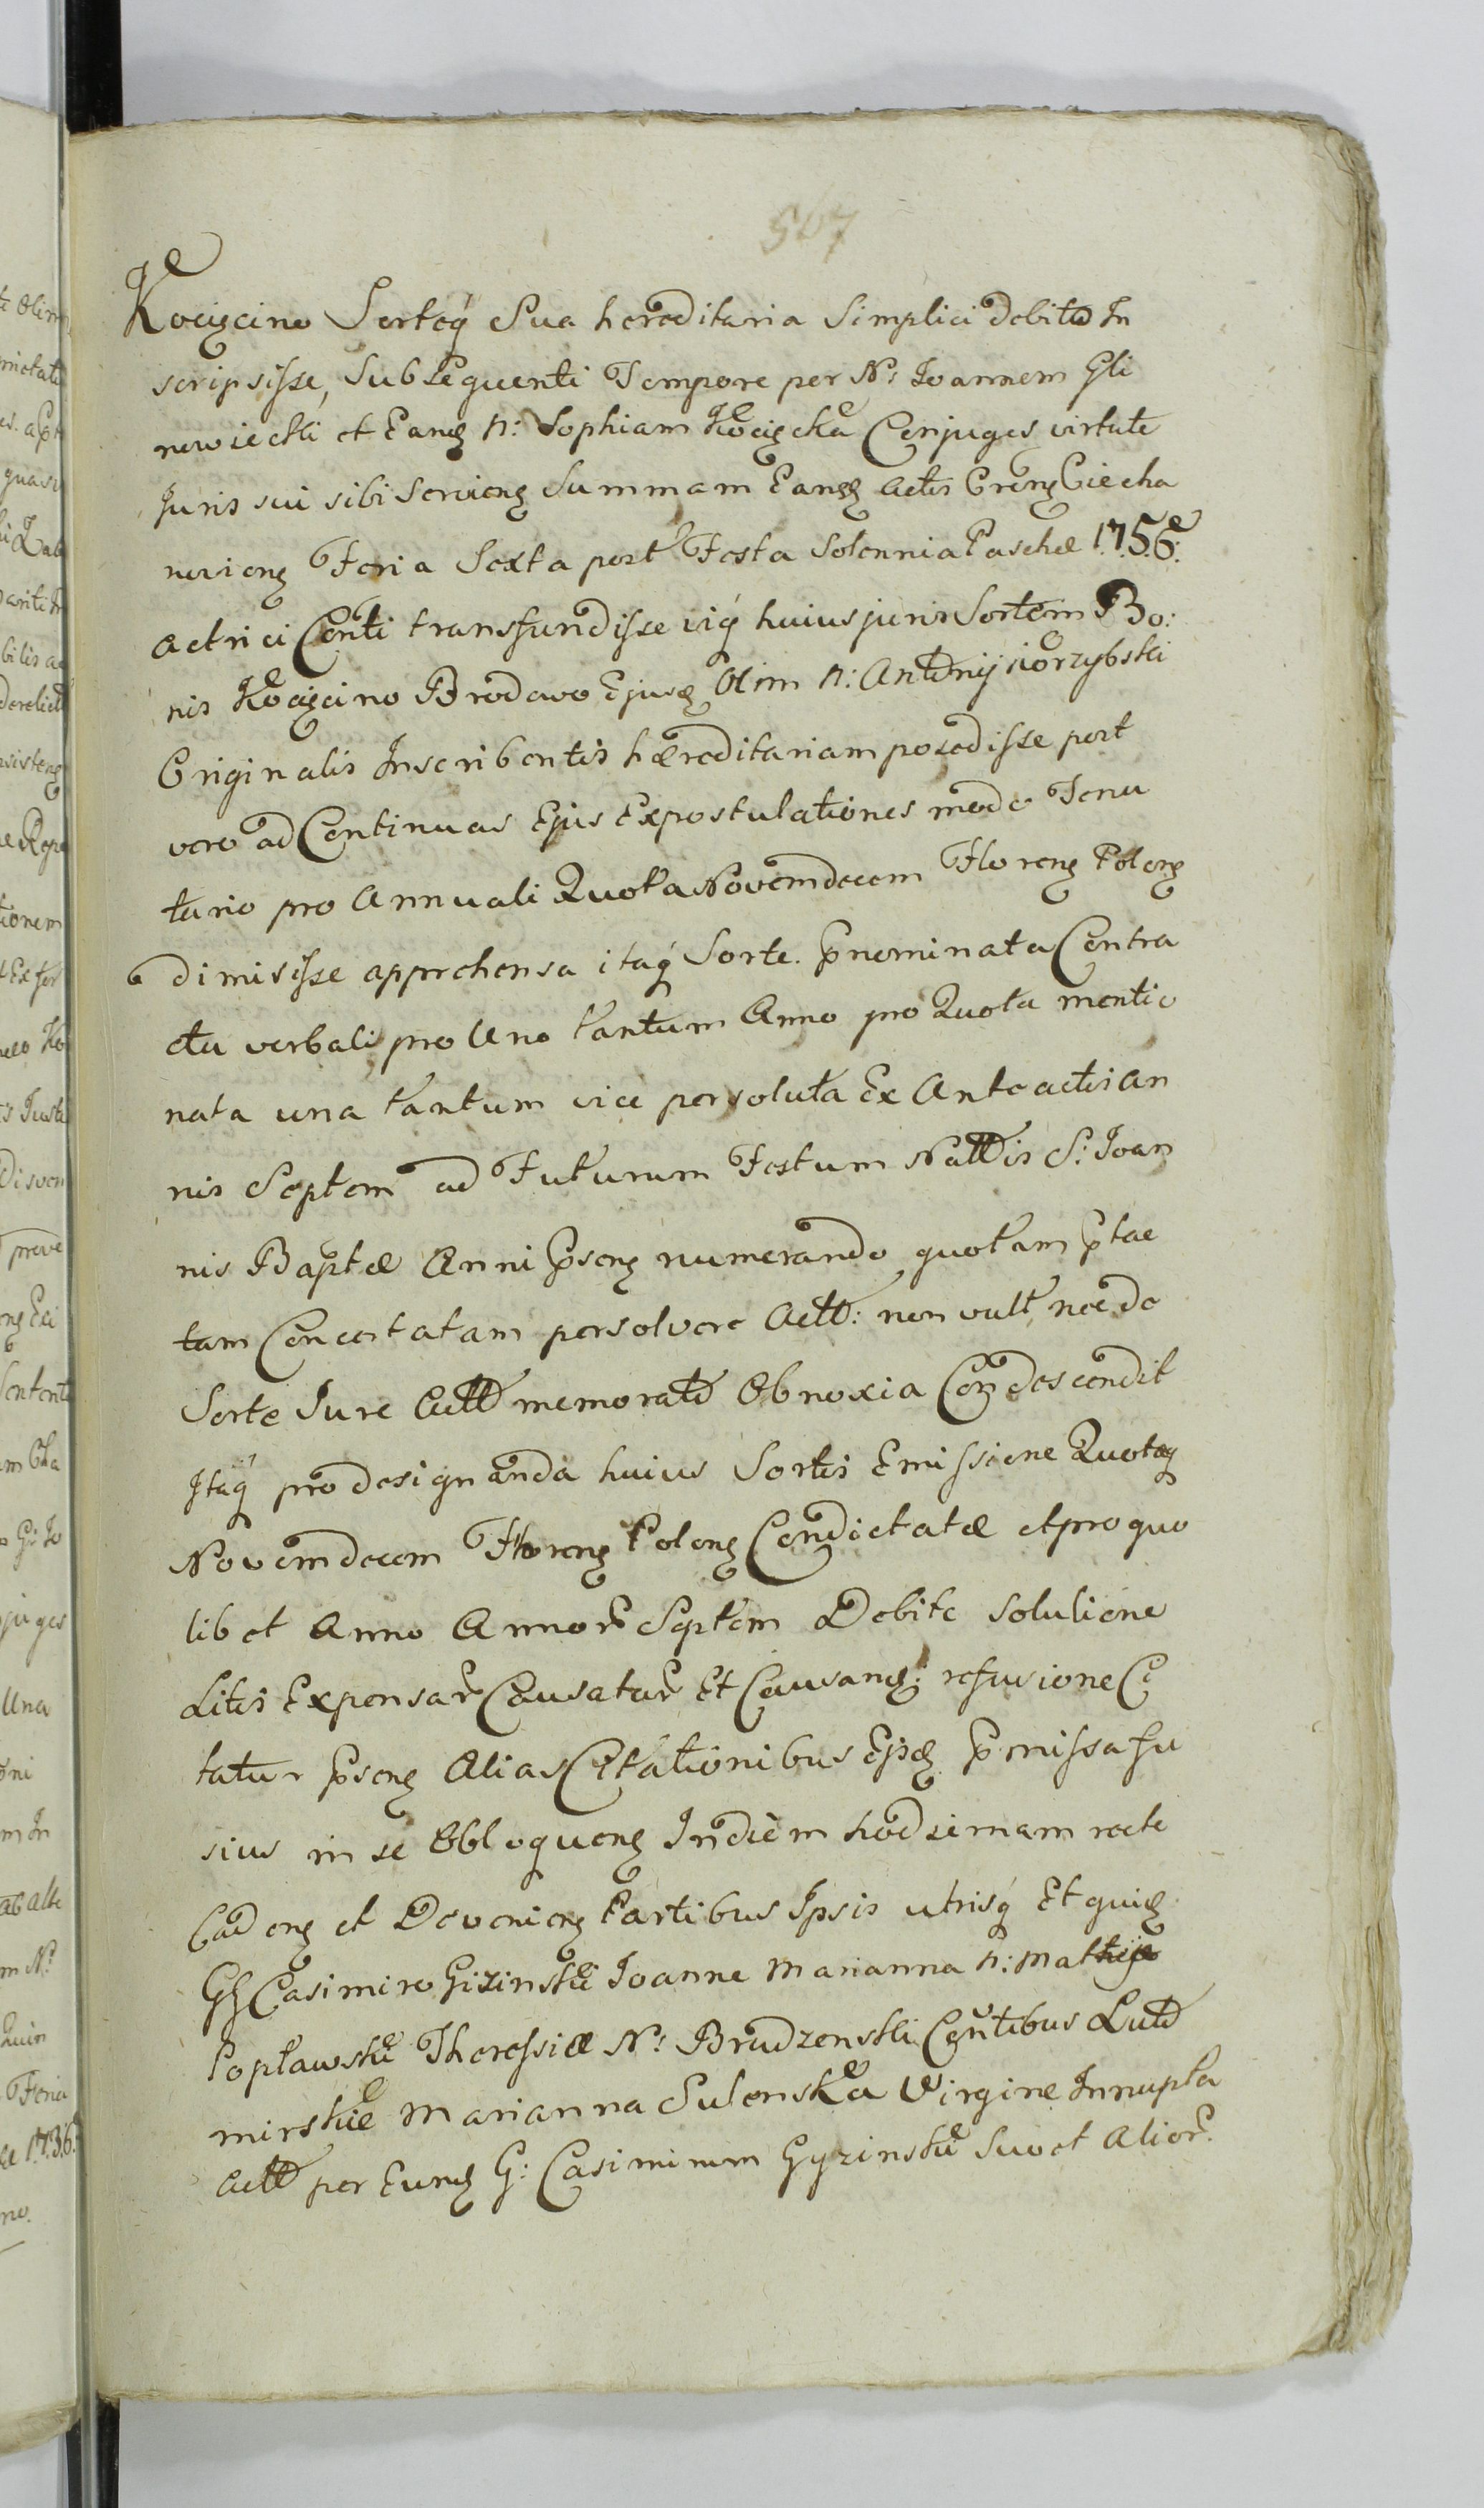 507
Kocięcino Sorteq́ Sua hereditaria Simplici debito In
scripsisse, Subsequenti Tempore per N: Joannem Gli
nowiecki et Eandę N: Sophiam Kocięcka Conjuges virtute
Juris sui sibi Servienę Summam Eandę Actis Crenę Ciecha
novienę Feria Sexta post Festa Solennia Paschæ 1756.
Actrici Conti transfundisse vig̃ huius juris Sortem Bo:
nis Kocięcino Brodowo Ejusdę Olim N: Antonij Kiorzybski
Originalis Inscribentis hæreditariam posedisse post
vero ad Continuas Ejus Expostulationes modo Tenu
tario pro Annuali Quota Novemdecem Florenę Polonę
dimisisse apprehensa itaq́ Sorte. p̃nominata Contra
ctu verbali pro Uno tantum Anno pro Quota mentio
nata una tantum vice persoluta Ex Anteactis An
nis Septem ad Futurum Festum Nattis S: Joan
nis Baptæ Anni p̃senę numerando quotam p̃tac
tam Concertatam persolvere Actt: non vult nec de
Sorte Jure Actt memorato Obnoxia Condescendit
Itaq́ pro designanda huius Sortis Emissione Quotæq
Novemdecem Florenę Polonę Condictatæ et pro quo
libet Anno Annor̃ Septem Debite Solutione
Litis Expensar̃ Causatar̃ Et Causandę: refusione Ci
tatur p̃senę Alias Citationibus Ejsdę p̃missa fu
sius in se Obloquenę In diem hodiernam recte
Cadenę et Devenienę Partibus Ipsis utrisq́ Et quidę
GG Casimiro Gizinski Joanne Marianna N: Mathija
Popławski Theressiæ N: Brudzenski Contibus Lud
mirskie Marianna Sulenska Virgine Innupta
Actt per Eundę G: Casimirum Gyzinski Suo et Alior̃